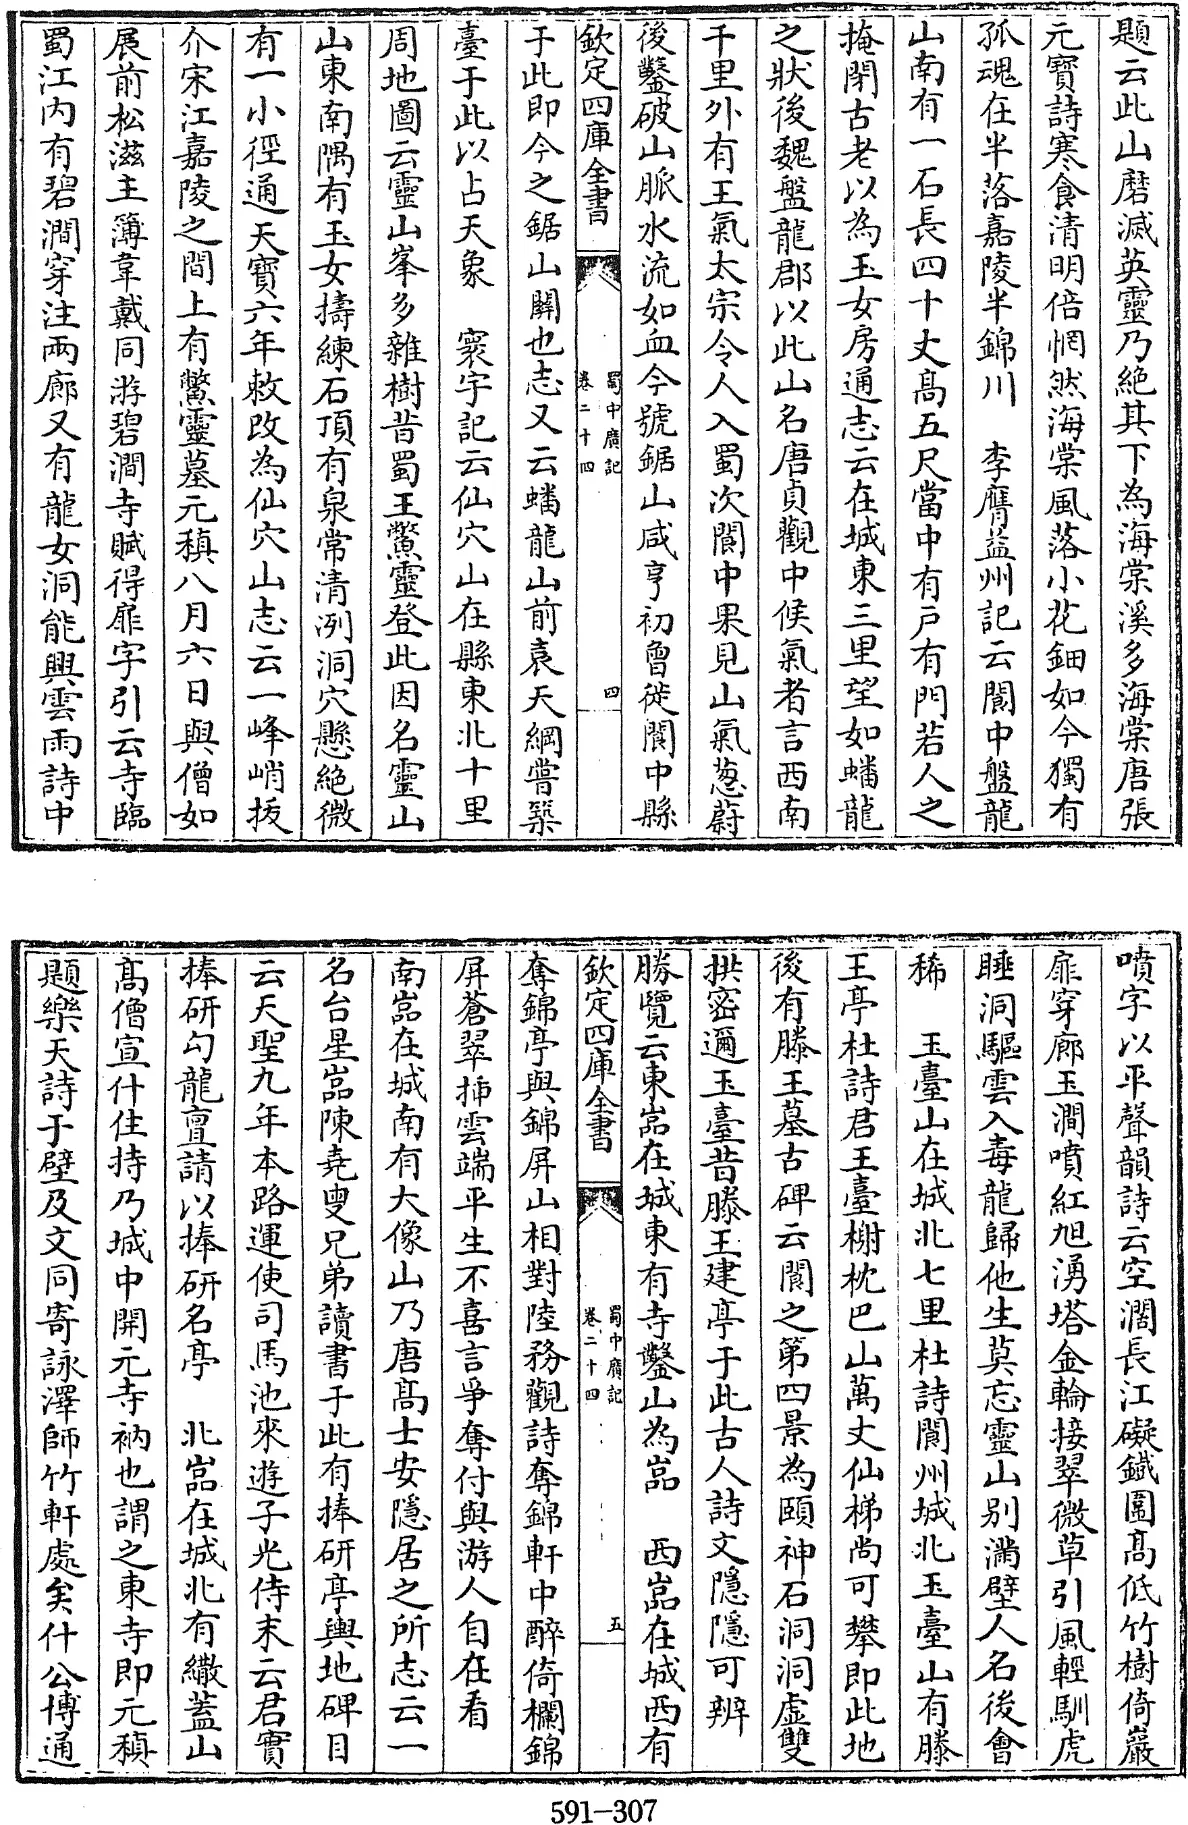 題云此山磨滅英靈乃絶其下為海棠溪多海棠唐張
元寳詩寒食清明倍惘然海棠風落小花鈿如今獨有
孤魂在半落嘉陵半錦川　李膺益州記云閬中盤龍
山南有一石長四十丈髙五尺當中有戸有門若人之
掩閉古老以為玉女房通志云在城東三里望如蟠龍
之狀後魏盤龍郡以此山名唐貞觀中候氣者言西南
千里外有王氣太宗令人入蜀次閬中果見山氣葱蔚
後鑿破山脈水流如血今號鋸山咸亨初曾徙閬中縣
欽定四庫全書
蜀中廣記
卷二十四
四
于此即今之鋸山關也志又云蟠龍山前袁天綱嘗築
臺于此以占天象　寰宇記云仙穴山在縣東北十里
周地圖云靈山峯多雜樹昔蜀王鱉靈登此因名靈山
山東南隅有玉女擣練石頂有泉常清洌洞穴懸絶微
有一小徑通天寳六年敕改為仙穴山志云一峰峭拔
介宋江嘉陵之間上有鱉靈墓元稹八月六日與僧如
展前松滋主簿韋戴同游碧澗寺賦得扉字引云寺臨
蜀江内有碧澗穿注兩廊又有龍女洞能興雲雨詩中
噴字以平聲韻詩云空濶長江礙鐵圍髙低竹樹倚巖
扉穿廊玉澗噴紅旭湧塔金輪接翠微草引風輕馴虎
睡洞驅雲入毒龍歸他生莫忘靈山别滿壁人名後會
稀　玉臺山在城北七里杜詩閬州城北玉臺山有滕
王亭杜詩君王臺榭枕巴山萬丈仙梯尚可攀即此地
後有滕王墓古碑云閬之第四景為頤神石洞洞虚雙
拱宻邇玉臺昔滕王建亭于此古人詩文隱隱可辨
勝覽云東嵓在城東有寺鑿山為嵓　西嵓在城西有
欽定四庫全書
蜀中廣記
卷二十四
五
奪錦亭與錦屏山相對陸務觀詩奪錦軒中醉倚欄錦
屏蒼翠揷雲端平生不喜言爭奪付與游人自在看
南嵓在城南有大像山乃唐髙士安隱居之所志云一
名台星嵓陳堯叟兄弟讀書于此有捧研亭輿地碑目
云天聖九年本路運使司馬池來遊子光侍末云君實
捧研勾龍亶請以捧研名亭　北嵓在城北有繖蓋山
髙僧宣什住持乃城中開元寺衲也謂之東寺即元稹
題樂天詩于壁及文同寄詠澤師竹軒處矣什公博通
591-307